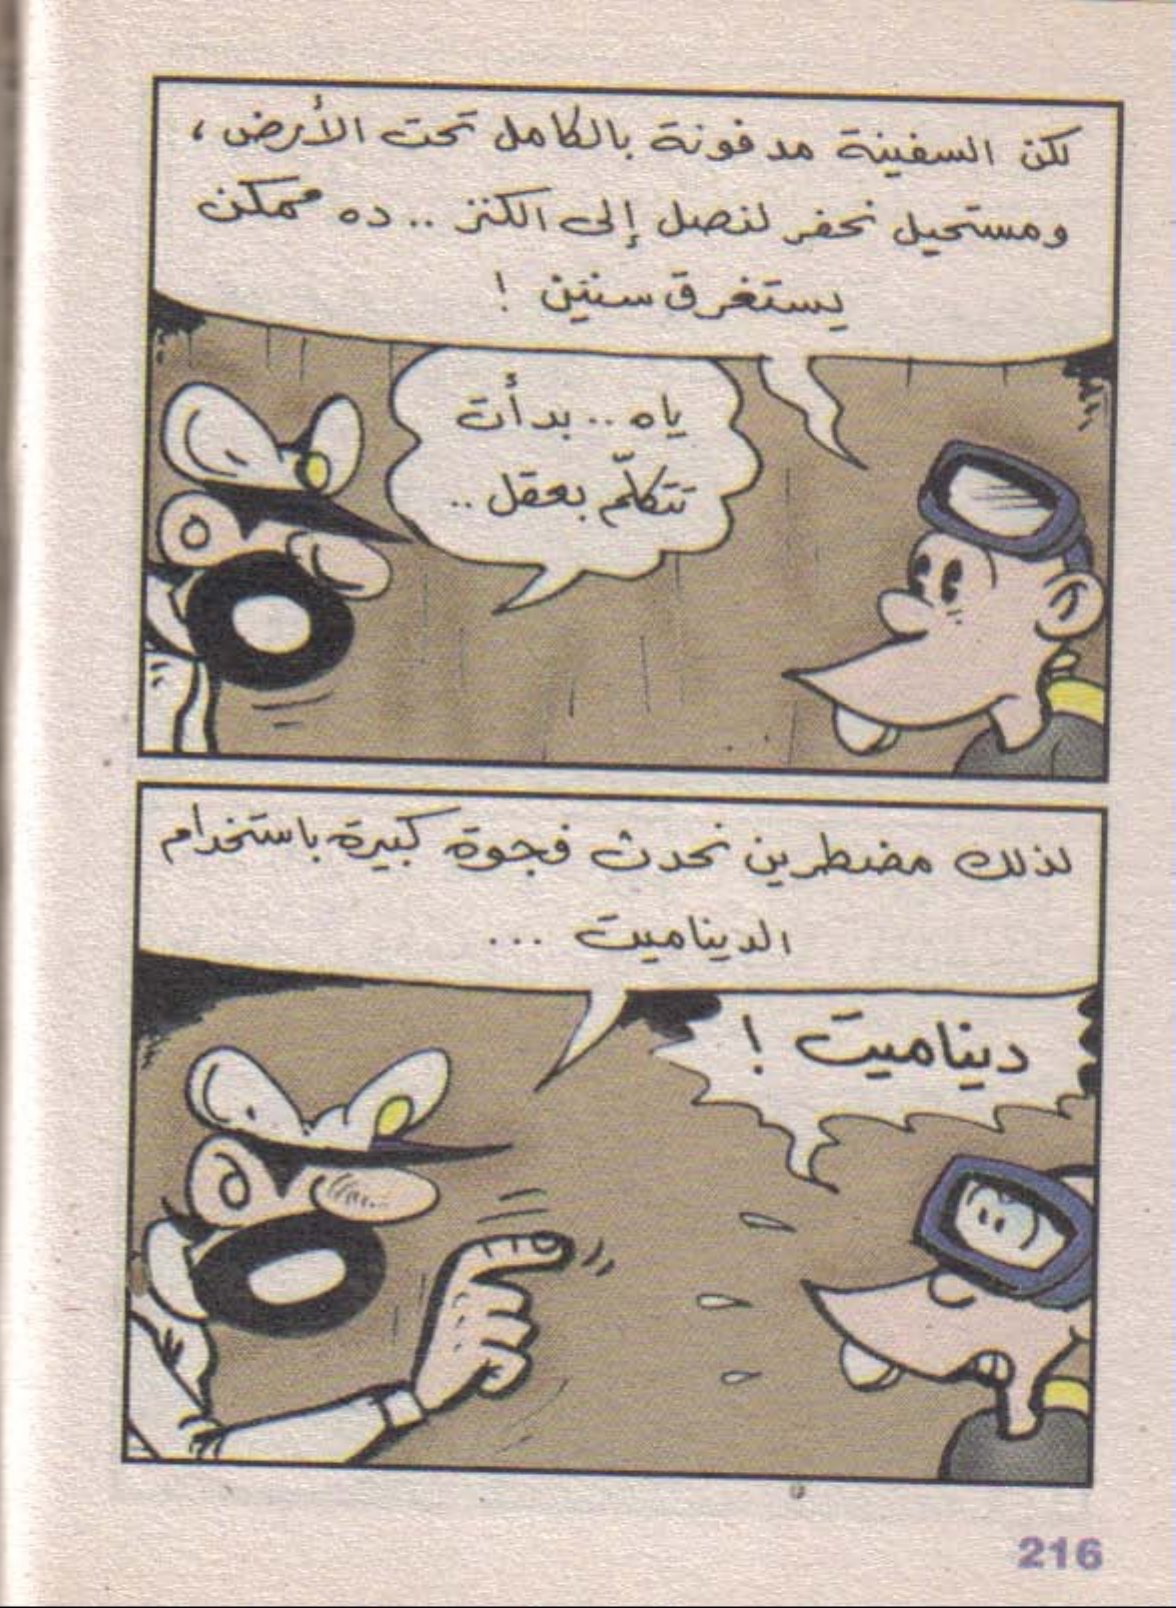 لكن السفينة مدفونة بالكامل تحت الأرض،
ومستحيل نحفر لنصل إلى الكنز .. ده ممكن
يستغرق سنين !
ياه .. بدأت
تتكلّم بعقل ..
لذلك مضطرين نحدث فجوة كبيرة باستخدام
الديناميت ...
ديناميت !
216